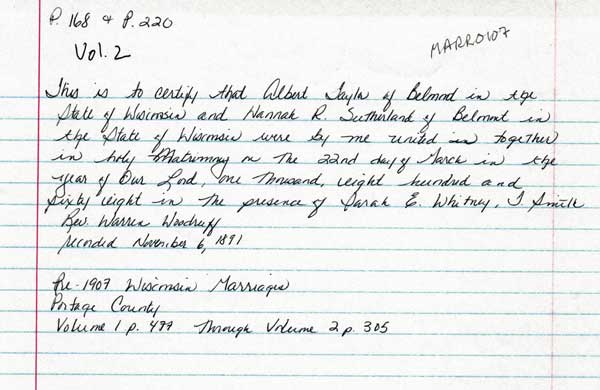 P. 168 & P. 220
Vol. 2
MARRO107
This is to certify that Albert Taylor of Belmont in the
State of Wisconsin and Hannah R. Sutherland of Belmont in
the State of Wisconsin were by me united in together
in holy Matrimony on the 22nd day of March in the
year of Our Lord, one thousand, eight hundred and
Sixty eight in the presence of Sarah E. Whitney, I Smith
Rev. Warren Woodruff
recorded November 6, 1891
Pre-1907 Wisconsin Marriages
Portage County
Volume 1 p. 499 through Volume 2 p. 305